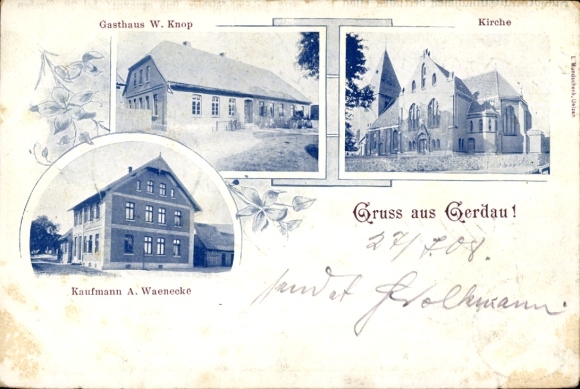 Gasthaus W. Knop
Kirche
Kaufmann A. Waenecke
Gruss aus Gerdau!
27/7.08.
sendet G. Volkmann.